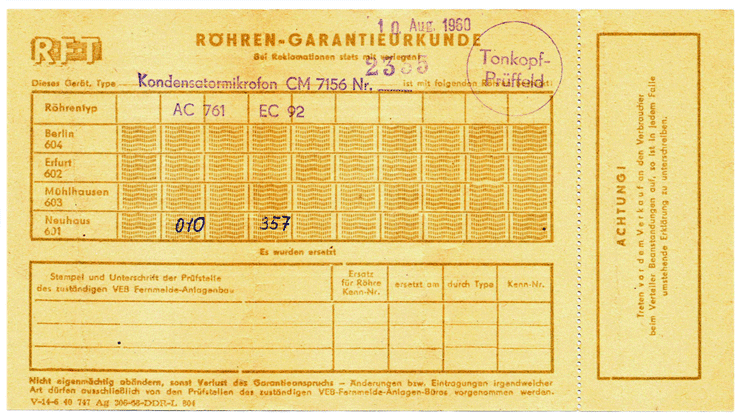 10. Aug. 1960
RFT
RÖHREN-GARANTIEURKUNDE
Bei Reklamationen stets mit vorlegen!
Tonkopf-
Prüffeld
Dieses Gerät, Type Kondensatormikrofon CM 7156 Nr. ist mit folgenden
Röhrentyp AC 761 EC 92
Berlin
604
Erfurt
602
Mühlhausen
603
Neuhaus
601 010 357
Es wurden ersetzt
Stempel und Unterschrift der Prüfstelle
des zuständigen VEB Fernmelde-Anlagenbau
Ersatz
für Röhre
Kenn-Nr.
ersetzt am
durch Type
Kenn-Nr.
Nicht eigenmächtig abändern, sonst Verlust des Garantieanspruchs — Änderungen bzw. Eintragungen irgendwelcher
Art dürfen ausschließlich von den Prüfstellen des zuständigen VEB-Fernmelde-Anlagen-Büros vorgenommen werden.
V-14-6 40 747 Ag 306-58-DDR-L 804
ACHTUNG!
Treten vor dem Verkauf an den Verbraucher
beim Verteiler Beanstandungen auf, so ist in jedem Falle
umstehende Erklärung zu unterschreiben.